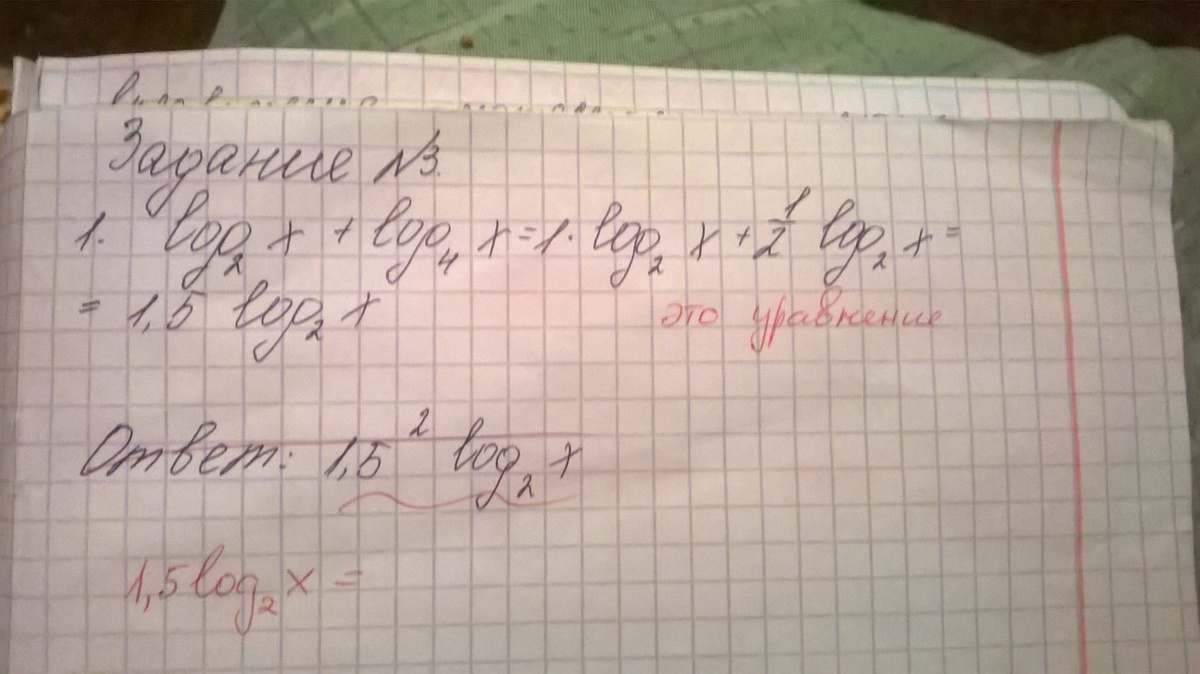 Задание №3.
1. log₂ x + log₄ x = 1 · log₂ x + 1/2 log₂ x =
= 1,5 log₂ x
это уравнение
Ответ: 1,5² log₂ x
1,5 log₂ x =